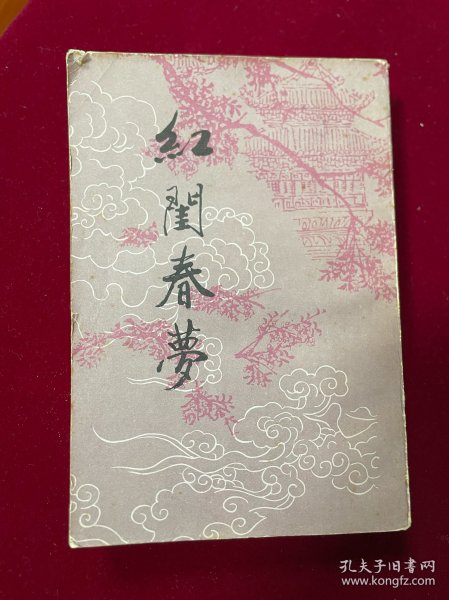 紅閨春夢
孔夫子旧书网
www.kongfz.com